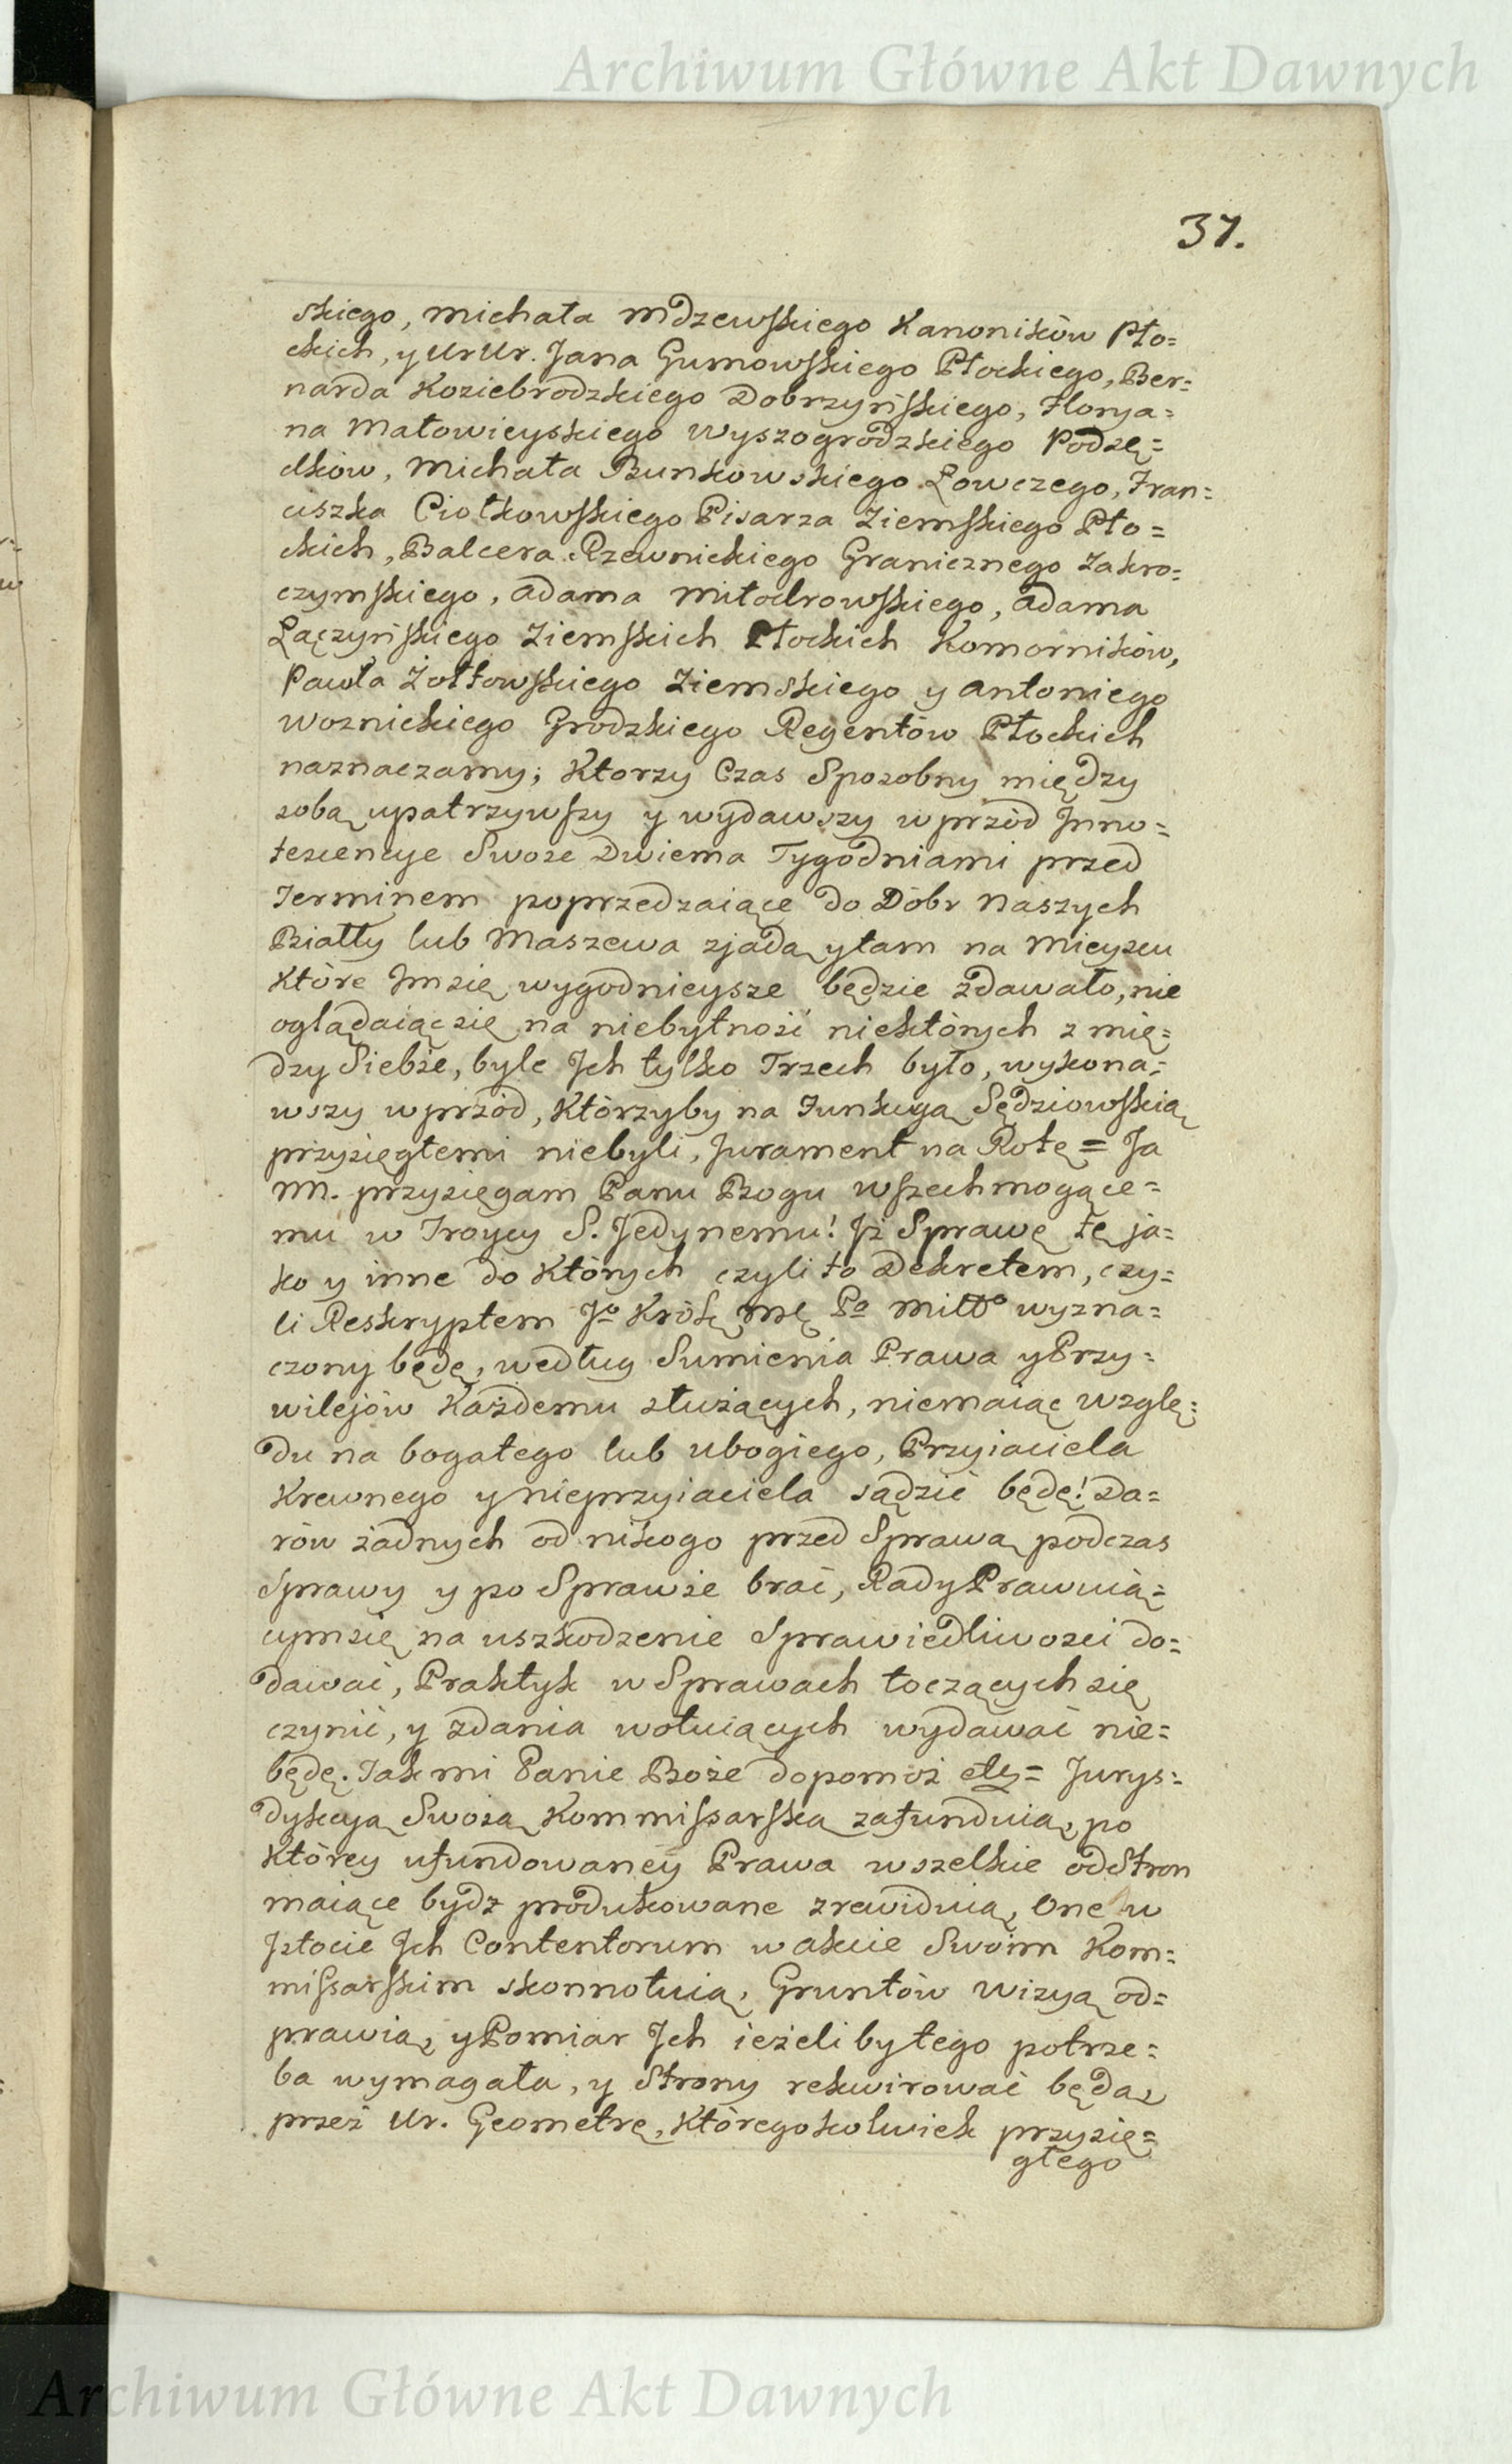 Archiwum Główne Akt Dawnych
37.
skiego, Michała Mdzewskiego Kanoników Pło=
ckich, y UrUr. Jana Gumowskiego Płockiego, Ber=
narda Koziebrodzkiego Dobrzyńskiego, Florya=
na Małowieyskiego Wyszogrodzkiego Podsę=
dków, Michała Bunkowskiego Łowczego, Fran=
ciszka Ciołkowskiego Pisarza Ziemskiego Pło=
ckich, Balcera Rzewnickiego Granicznego Zakro=
czymskiego, Adama Miłodrowskiego, Adama
Łączyńskiego Ziemskich Płockich Komorników,
Pawła Żółtowskiego Ziemskiego y Antoniego
Woznickiego Grodzkiego Regentów Płockich
naznaczamy; Ktorzy Czas Sposobny między
sobą upatrzywszy y wydawszy wprzód Inno=
tescencye Swoie Dwiema Tygodniami przed
Terminem poprzedzaiące do Dóbr Naszych
Białły lub Maszewa zjadą ytam na Mieyscu
które Imsię wygodnieysze będzie zdawało, nie
oglądaiącsię na niebytność niektórych z mię=
dzy Siebie, byle Ich tylko Trzech było, wykona=
wszy wprzód, Którzyby na Funkcyą Sędziowską
przysięgłemi niebyli, Jurament na Rotę = Ja
NN. przysięgam Panu Bogu wszechmogące=
mu w Troycy S. Jedynemu! Iż Sprawę tę ja=
ko y inne do Których czyli to Dekretem, czy=
li Reskryptem Jo Krók Mę Po Miłło wyzna=
czony będę, według Sumienia Prawa yPrzy=
wilejów Każdemu służących, niemaiąc wzglę=
du na bogatego lub ubogiego, Przyiaciela
Krewnego y nieprzyiaciela sądzić będę! Da=
rów żadnych od nikogo przed Sprawą podczas
Sprawy y po Sprawie brać, Rady Prawuią=
cymsię na uszkodzenie Sprawiedliwości do=
dawać, Praktyk w Sprawach toczących się
czynić, y zdania wotuiących wydawać nie=
będę. Tak mi Panie Boże dopomóż etc = Jurys=
dykcyą Swoią Kommissarską zafunduią, po
Którey ufundowaney Prawa wszelkie odStron
maiące bydz produkowane zrewiduią, One w
Istocie Ich Contentorum w akcie Swoim Kom=
missarskim skonnotuią, Gruntów wizyą od=
prawią, yPomiar Ich ieżeli bytego potrze=
ba wymagała, y Strony rekwirować będą,
przez Ur. Geometrę, Któregokolwiek przysię=
głego
Archiwum Główne Akt Dawnych